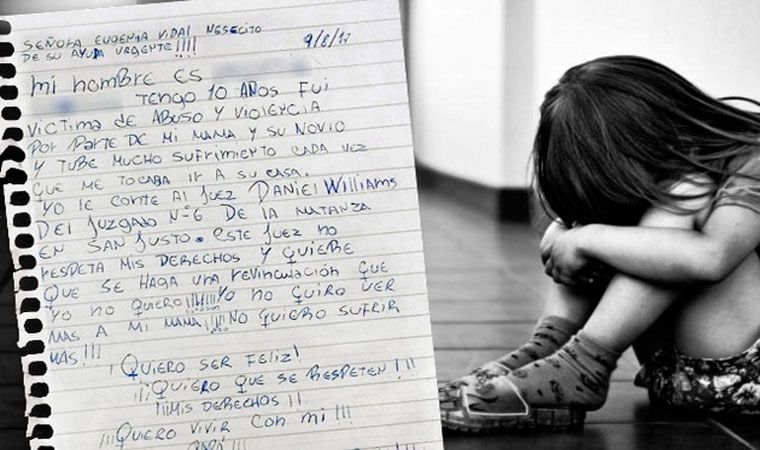 SEÑORA EUGENIA VIDAL NESECITO
DE SU AYUDA URGENTE!!!!
9/8/17
Mi NOMBRE ES
TENGO 10 AÑOS FUI
VICTIMA DE ABUSO Y VIOLENCIA
POR PARTE DE MI MAMA Y SU NOVIO
Y TUBE MUCHO SUFRIMIENTO CADA VEZ
QUE ME TOCABA IR A SU CASA.
YO LE CONTE AL JUEZ DANIEL Williams
DEL JUZGADO Nº6 DE LA MATANZA
EN SAN JUSTO. ESTE JUEZ NO
RESPETA MIS DERECHOS Y QUIERE
QUE SE HAGA UNA REVINCULACIÓN QUE
YO NO QUIERO!!!!! YO NO QUIRO VER
MAS A MI MAMA!!!! NO QUIERO SUFRIR
MAS!!!
¡QUIERO SER FELIZ!
¡¡¡QUIERO QUE SE RESPETEN!!!
¡¡¡MIS DERECHOS!!
¡QUIERO VIVIR CON MI!!!